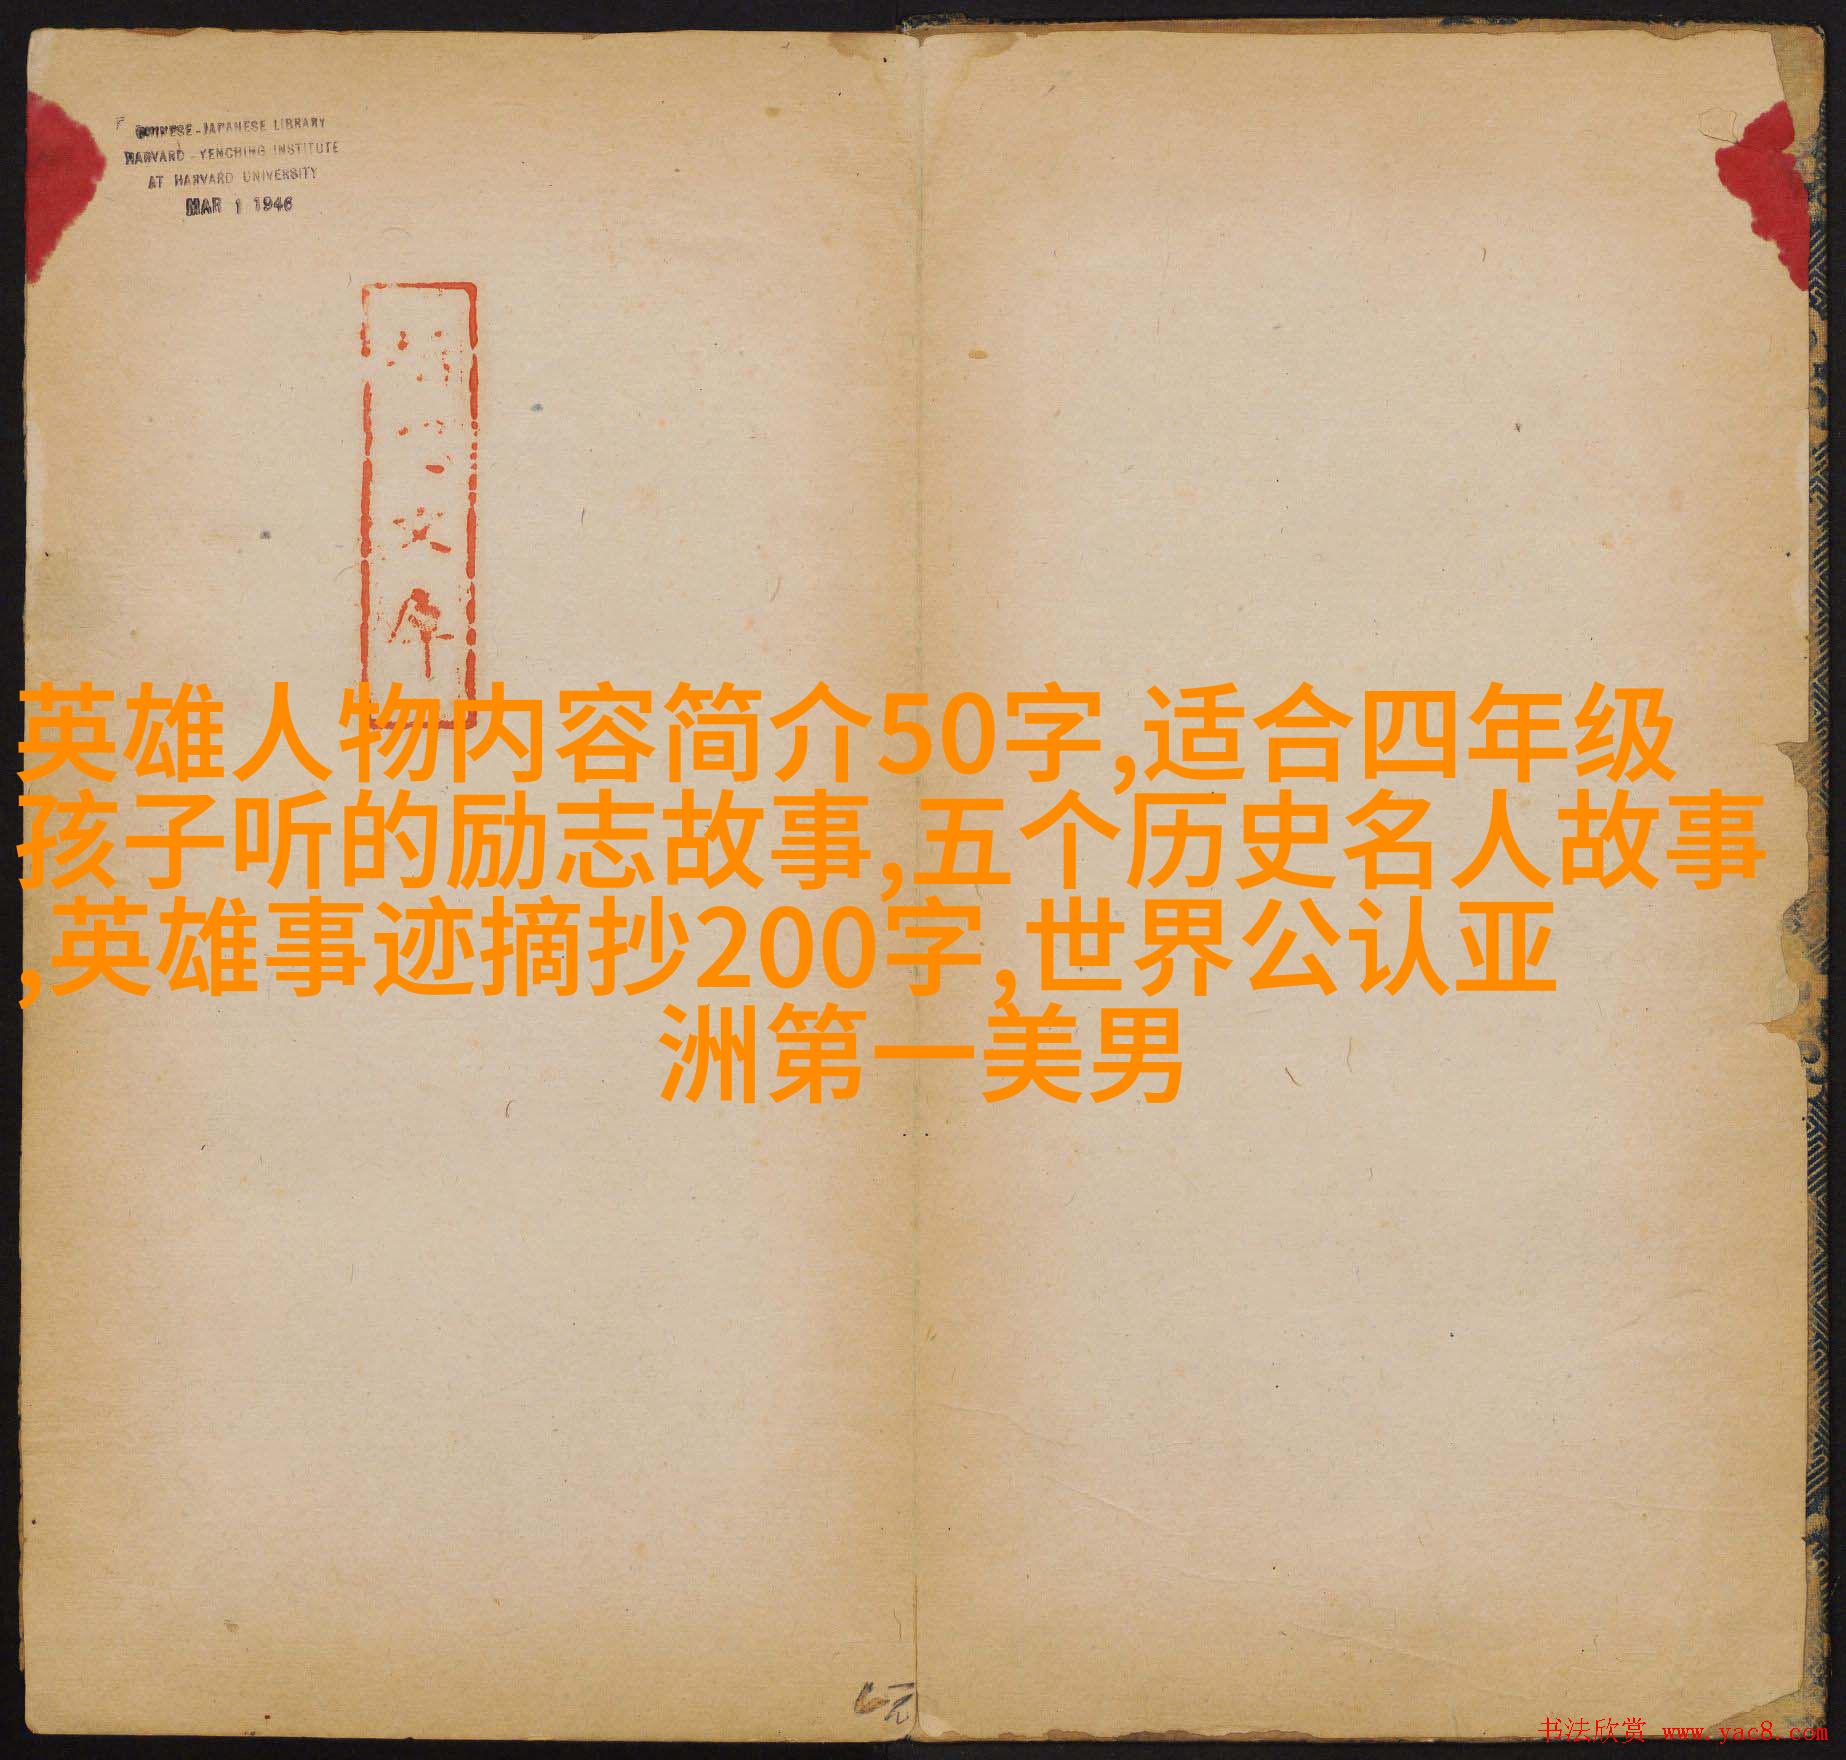 CHINESE-JAPANESE LIBRARY
HARVARD-YENCHING INSTITUTE
AT HARVARD UNIVERSITY
MAR 1 1946
英雄人物内容简介50字,适合四年级
孩子听的励志故事,五个历史名人故事
,英雄事迹摘抄200字,世界公认亚
洲第一美男
书法欣赏 www.yac8.com